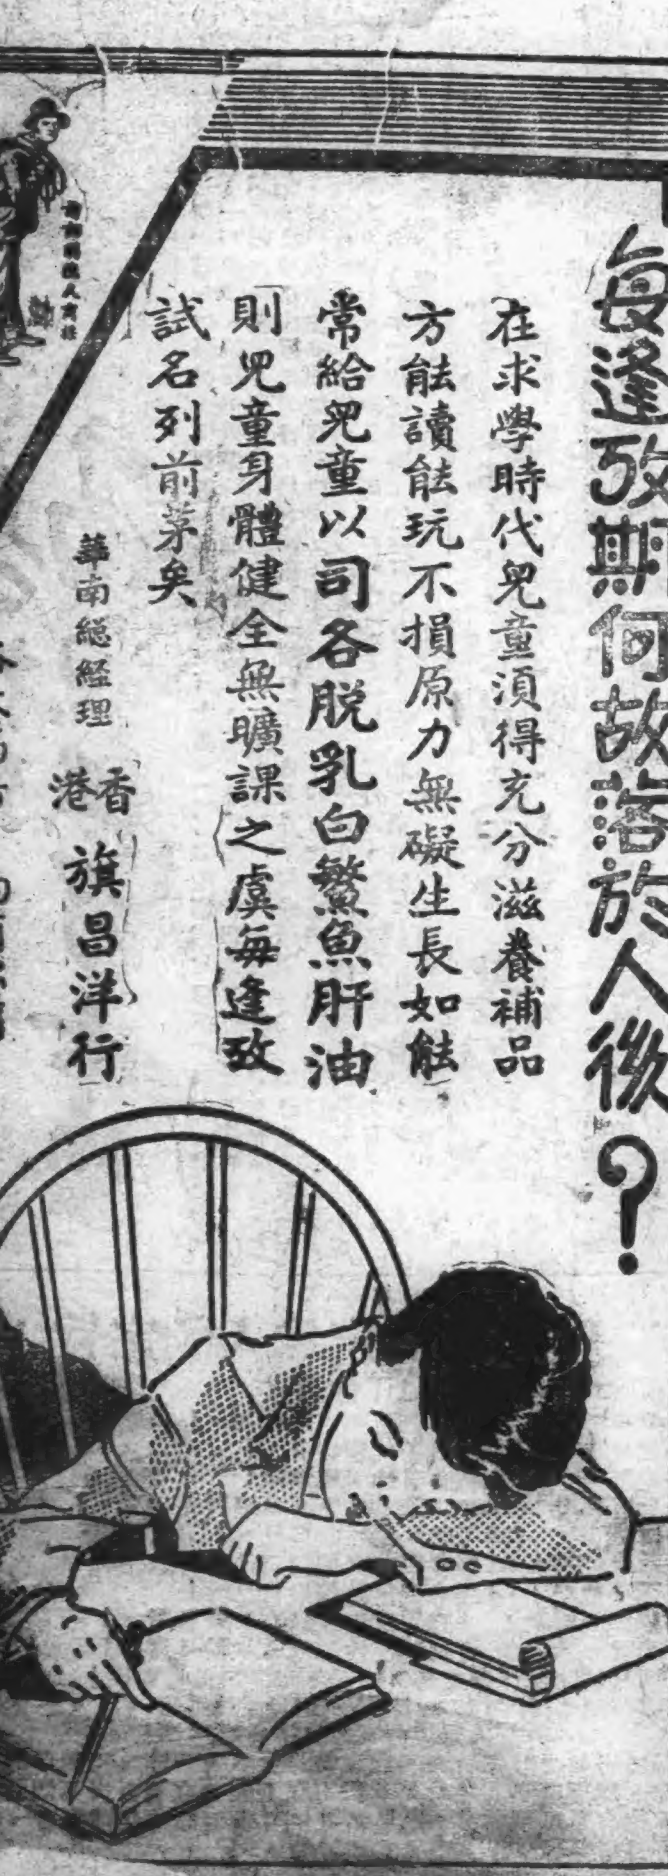 每逢攷期何故落於人後？
在求學時代兒童須得充分滋養補品
方能讀能玩不損原力無礙生長如能
常給兒童以司各脫乳白鰵魚肝油
則兒童身體健全無曠課之虞每逢攷
試名列前茅矣
華南總經理
香港
旗昌洋行